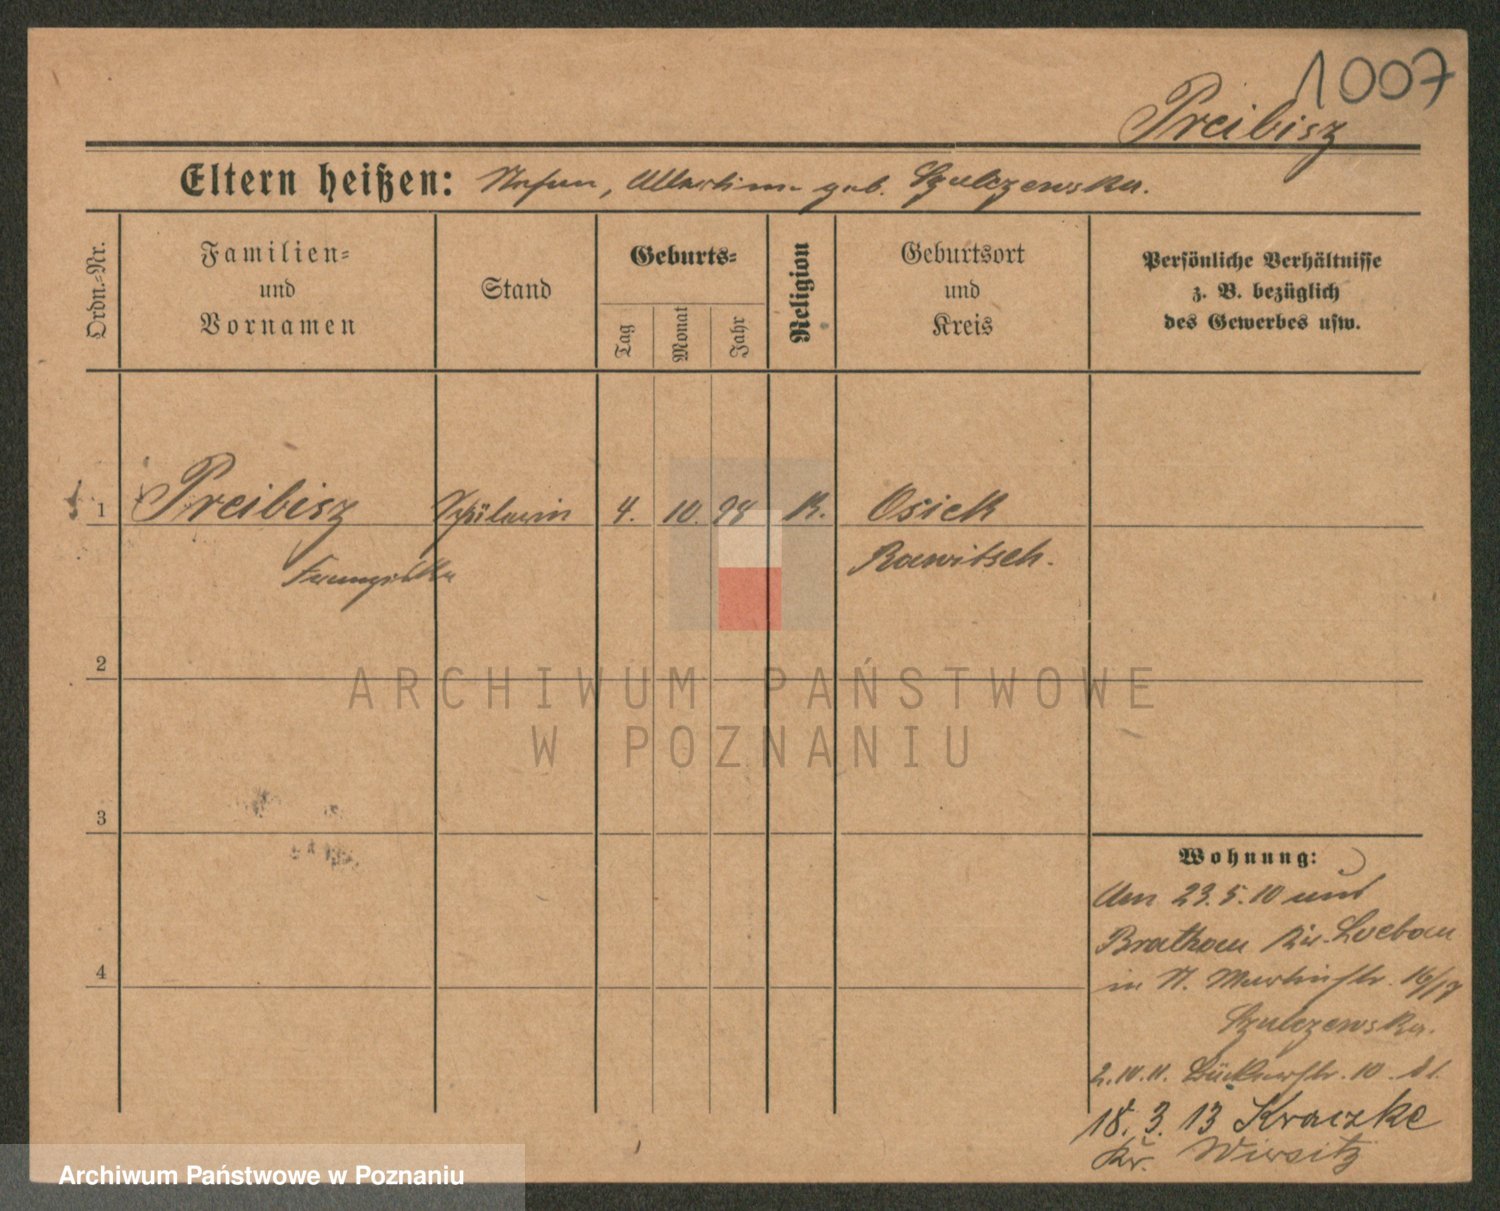 1007
Preibisz
Eltern heißen: Stefan, Martin geb. Szulczewska.
Ordn.-Nr.
Familien- und Vornamen
Stand
Geburts-
Tag
Monat
Jahr
Religion
Geburtsort und Kreis
Persönliche Verhältnisse
z. B. bezüglich
des Gewerbes usw.
1 Preibisz Schülerin 4. 10. 98 K. Osiek
Rawitsch.
2
3
4
Wohnung:
Am 23. 5. 10 und
Brathau Kr. Loebau
in St. Martinstr. 16/17
Szulczewska.
2. 10. 11. Bäckerstr. 10
18. 3. 13 Kraczke
Kr. Wirsitz
ARCHIWUM PAŃSTWOWE
W POZNANIU
Archiwum Państwowe w Poznaniu